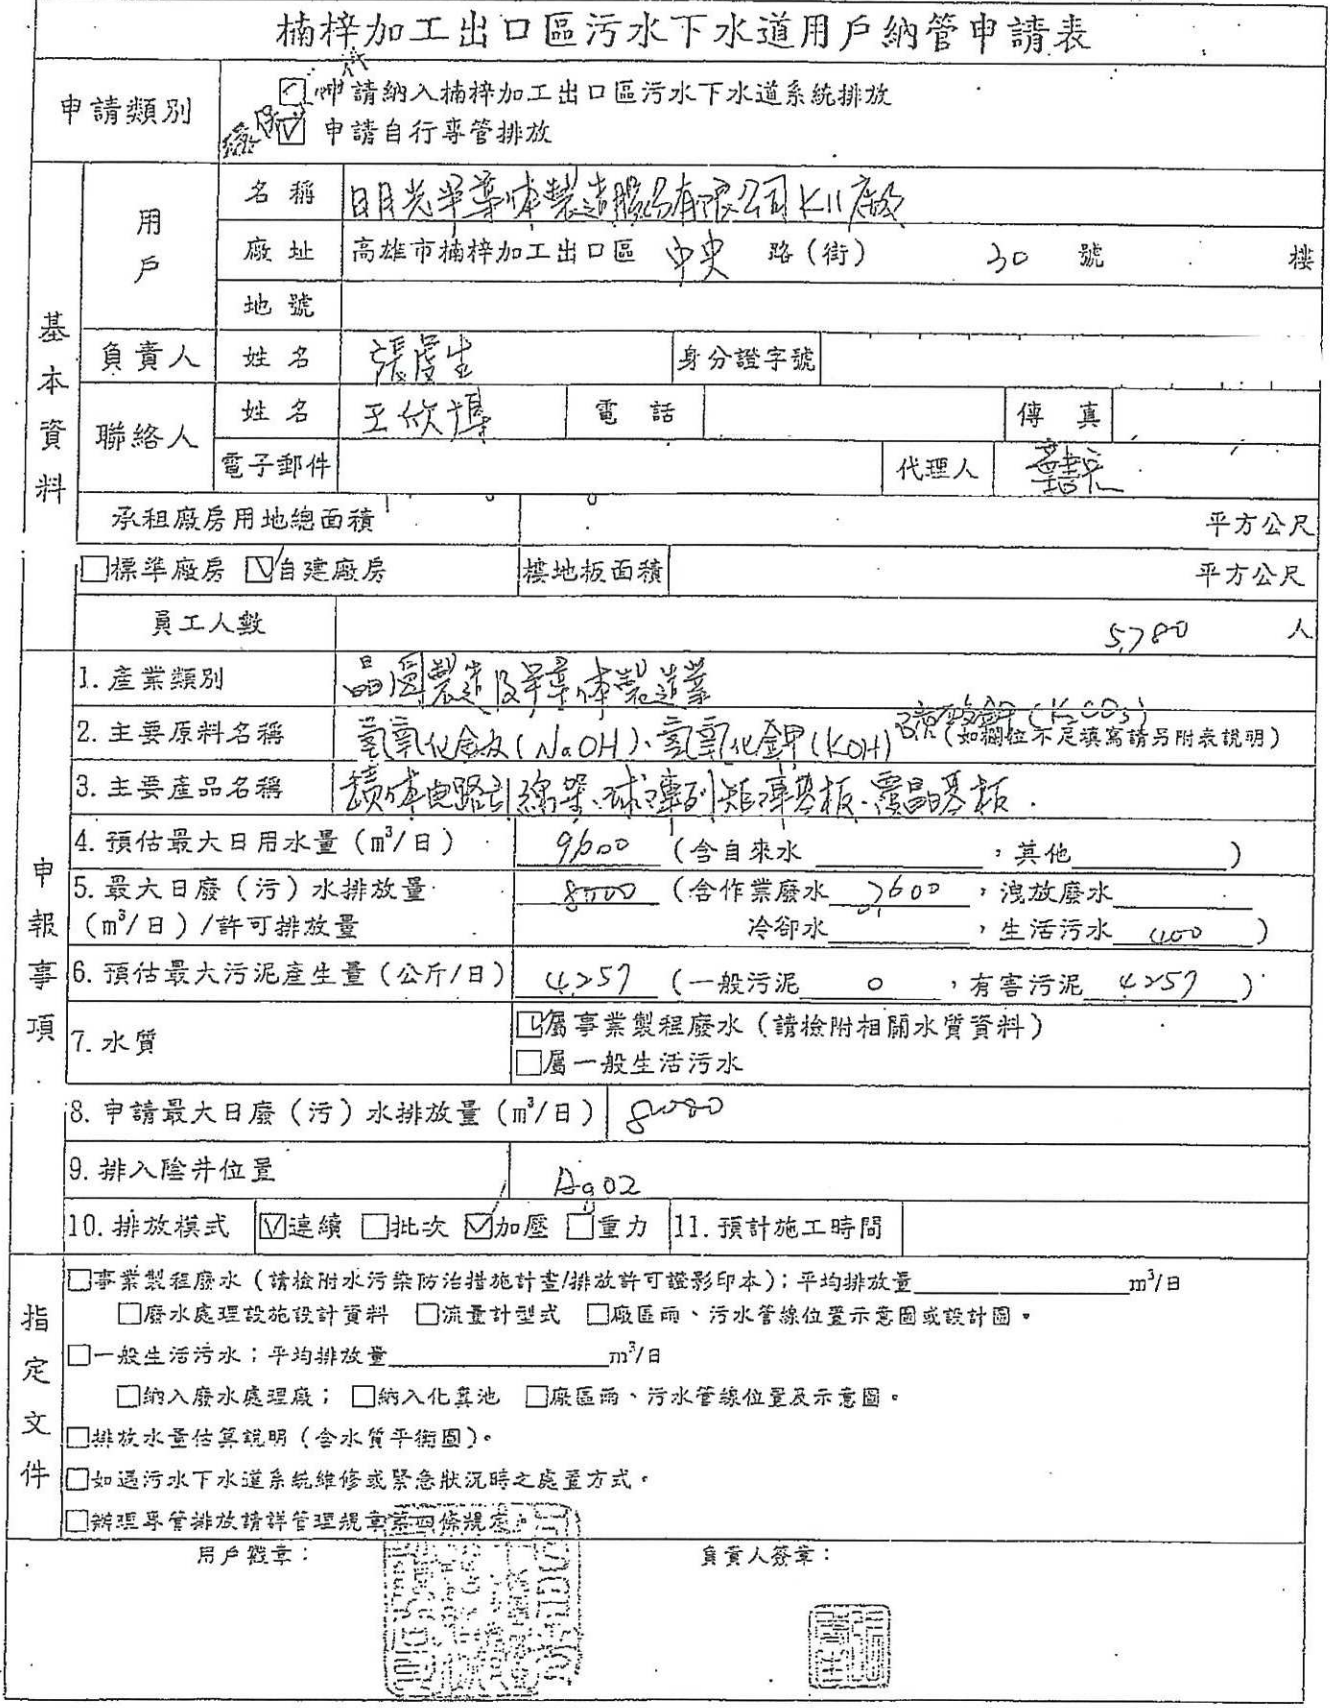 楠梓加工出口區污水下水道用戶納管申請表
申請類別
申請納入楠梓加工出口區污水下水道系統排放
申請自行專管排放
基本資料
用戶
名稱 日月光半導体製造股份有限公司K11廠
廠址 高雄市楠梓加工出口區 中央 路(街) 30 號 樓
地號
負責人 姓名 張虔生 身分證字號
聯絡人 姓名 王欣 電話 傳真
電子郵件 代理人
承租廠房用地總面積 平方公尺
□標準廠房 ☑自建廠房 樓地板面積 平方公尺
員工人數 5,780 人
申報事項
1.產業類別 晶圓製造及半導体製造業
2.主要原料名稱 氫氧化鈉(NaOH)、氫氧化鉀(KOH) 碳酸鉀(K2CO3)
(如欄位不足填寫請另附表說明)
3.主要產品名稱 積体電路引線架、球陣列矩陣基板、覆晶基板.
4.預估最大日用水量(m³/日) 9,600 (含自來水 ，其他 )
5.最大日廢(污)水排放量 (含作業廢水 7,600 ，洩放廢水
(m³/日)/許可排放量 冷卻水 ，生活污水 400 )
6.預估最大污泥產生量(公斤/日) 4,257 (一般污泥 0 ，有害污泥 4257 )
7.水質
☑屬事業製程廢水(請檢附相關水質資料)
□屬一般生活污水
8.申請最大日廢(污)水排放量(m³/日)
9.排入陰井位置 Ag02
10.排放模式 ☑連續 □批次 ☑加壓 □重力 11.預計施工時間
指定文件
□事業製程廢水(請檢附水污染防治措施計畫/排放許可證影印本)；平均排放量 m³/日
□廢水處理設施設計資料 □流量計型式 □廠區雨、污水管線位置示意圖或設計圖。
□一般生活污水；平均排放量 m³/日
□納入廢水處理廠； □納入化糞池 □廠區雨、污水管線位置及示意圖。
□排放水量估算說明(含水質平衡圖)。
□如遇污水下水道系統維修或緊急狀況時之處置方式。
□辦理專管排放請詳管理規章第四條規定。
用戶戳章： 負責人簽章：